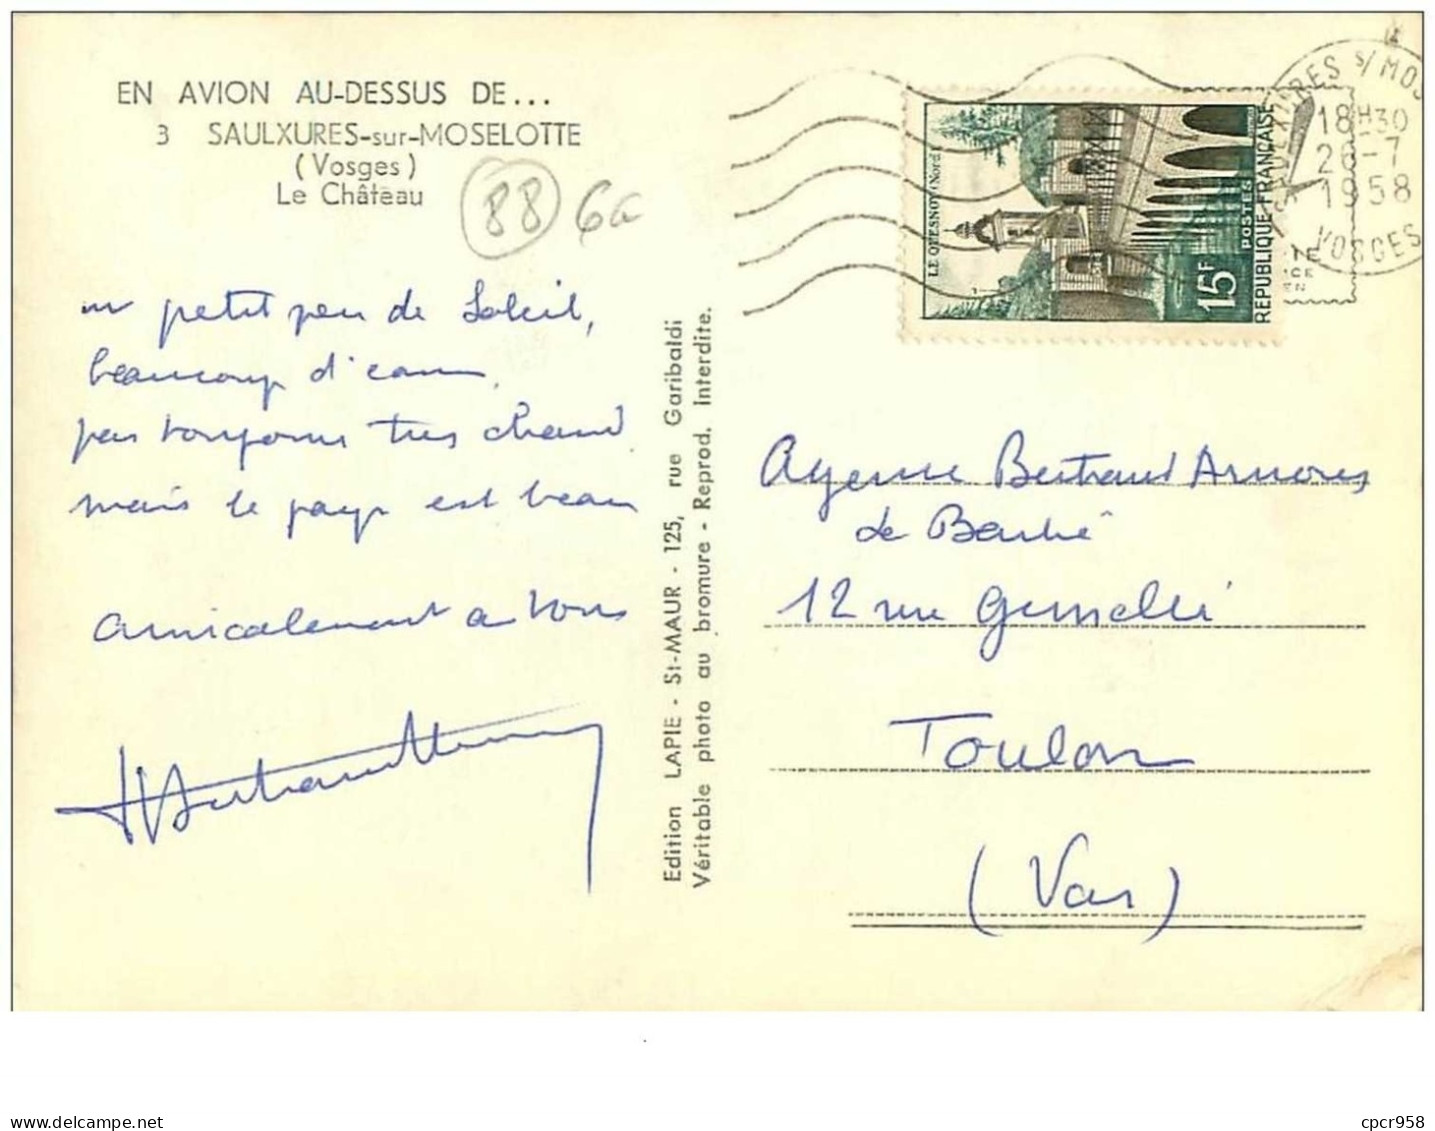 EN AVION AU-DESSUS DE...
3 SAULXURES-sur-MOSELOTTE
(Vosges)
Le Château
88 6a
un petit peu de Soleil,
beaucoup d'eau,
pas toujours très chaud
mais le pays est beau
amicalement a tous
Edition LAPIE - St-MAUR - 125, rue Garibaldi
Véritable photo au bromure - Reprod. Interdite.
LE QUESNOY (Nord)
15F
POSTES
REPUBLIQUE FRANÇAISE
SAULXURES s/ MOS
18H30
26-7
1958
VOSGES
Agence Bertrand
de
12 rue
Toulon
(Var)
cpcr958